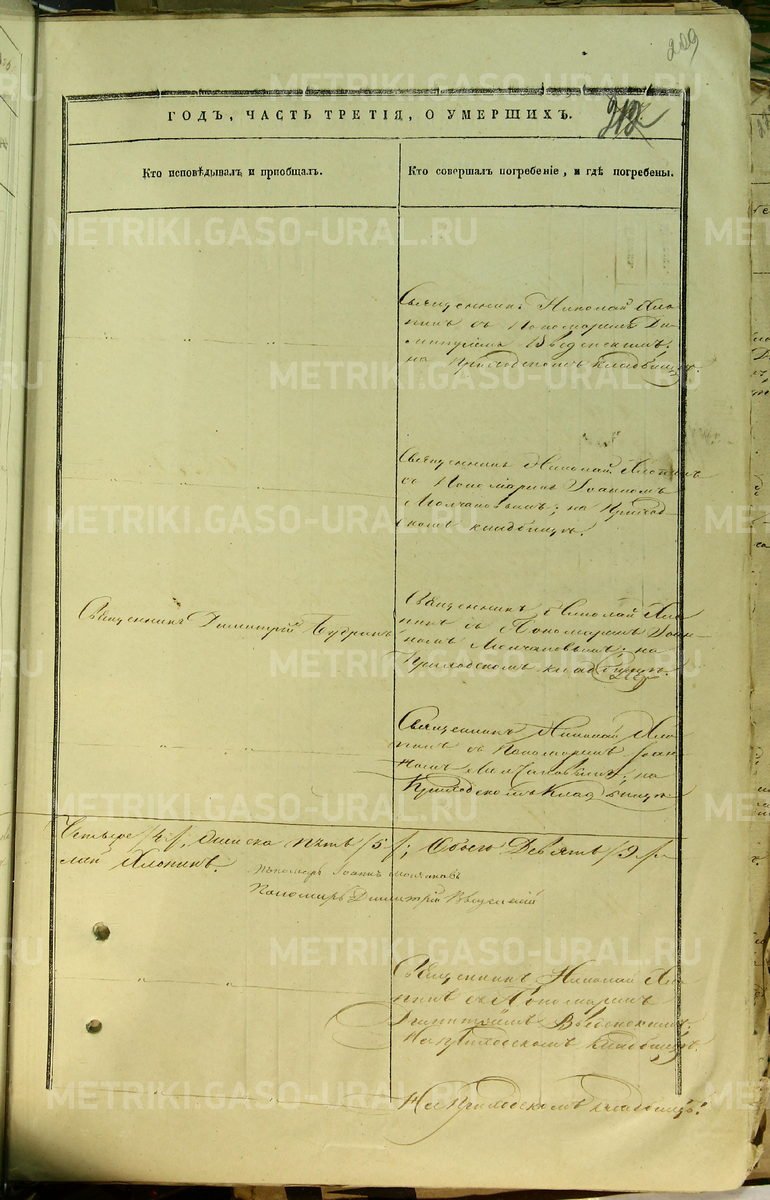 209
ГОДЪ, ЧАСТЬ ТРЕТІЯ, О УМЕРШИХЪ.
212
Кто исповѣдывалъ и пріобщалъ.
Кто совершалъ погребеніе, и гдѣ погребены.
Священникъ Николай Хло
пинъ съ Пономаремъ Ди-
митріемъ Введенскимъ;
на Приходскомъ кладбищѣ.
Священникъ Николай Хлопинъ
съ Пономаремъ Іоанномъ
Молчановымъ; на Приход-
скомъ кладбищѣ.
Священникъ Димитрій
Священникъ Николай Хло
пинъ съ Пономаремъ Іоан-
номъ Молчановымъ; на
Приходскомъ кладбищѣ.
Священникъ Николай Хло
пинъ съ Пономаремъ Іоан
номъ Молчановымъ; на
Приходскомъ кладбищѣ
Четыре /4/, женска пять /5/; Обоего Девять /9/
лай Хлопинъ.
Пономарь Іоаннъ Молчановъ
Пономарь Димитрій Введенскій
Священникъ Николай Хло
пинъ съ Пономаремъ
Димитріемъ Введенскимъ;
На Приходскомъ кладбищѣ.
На Приходскомъ кладбищѣ.
METRIKI.GASO-URAL.RU